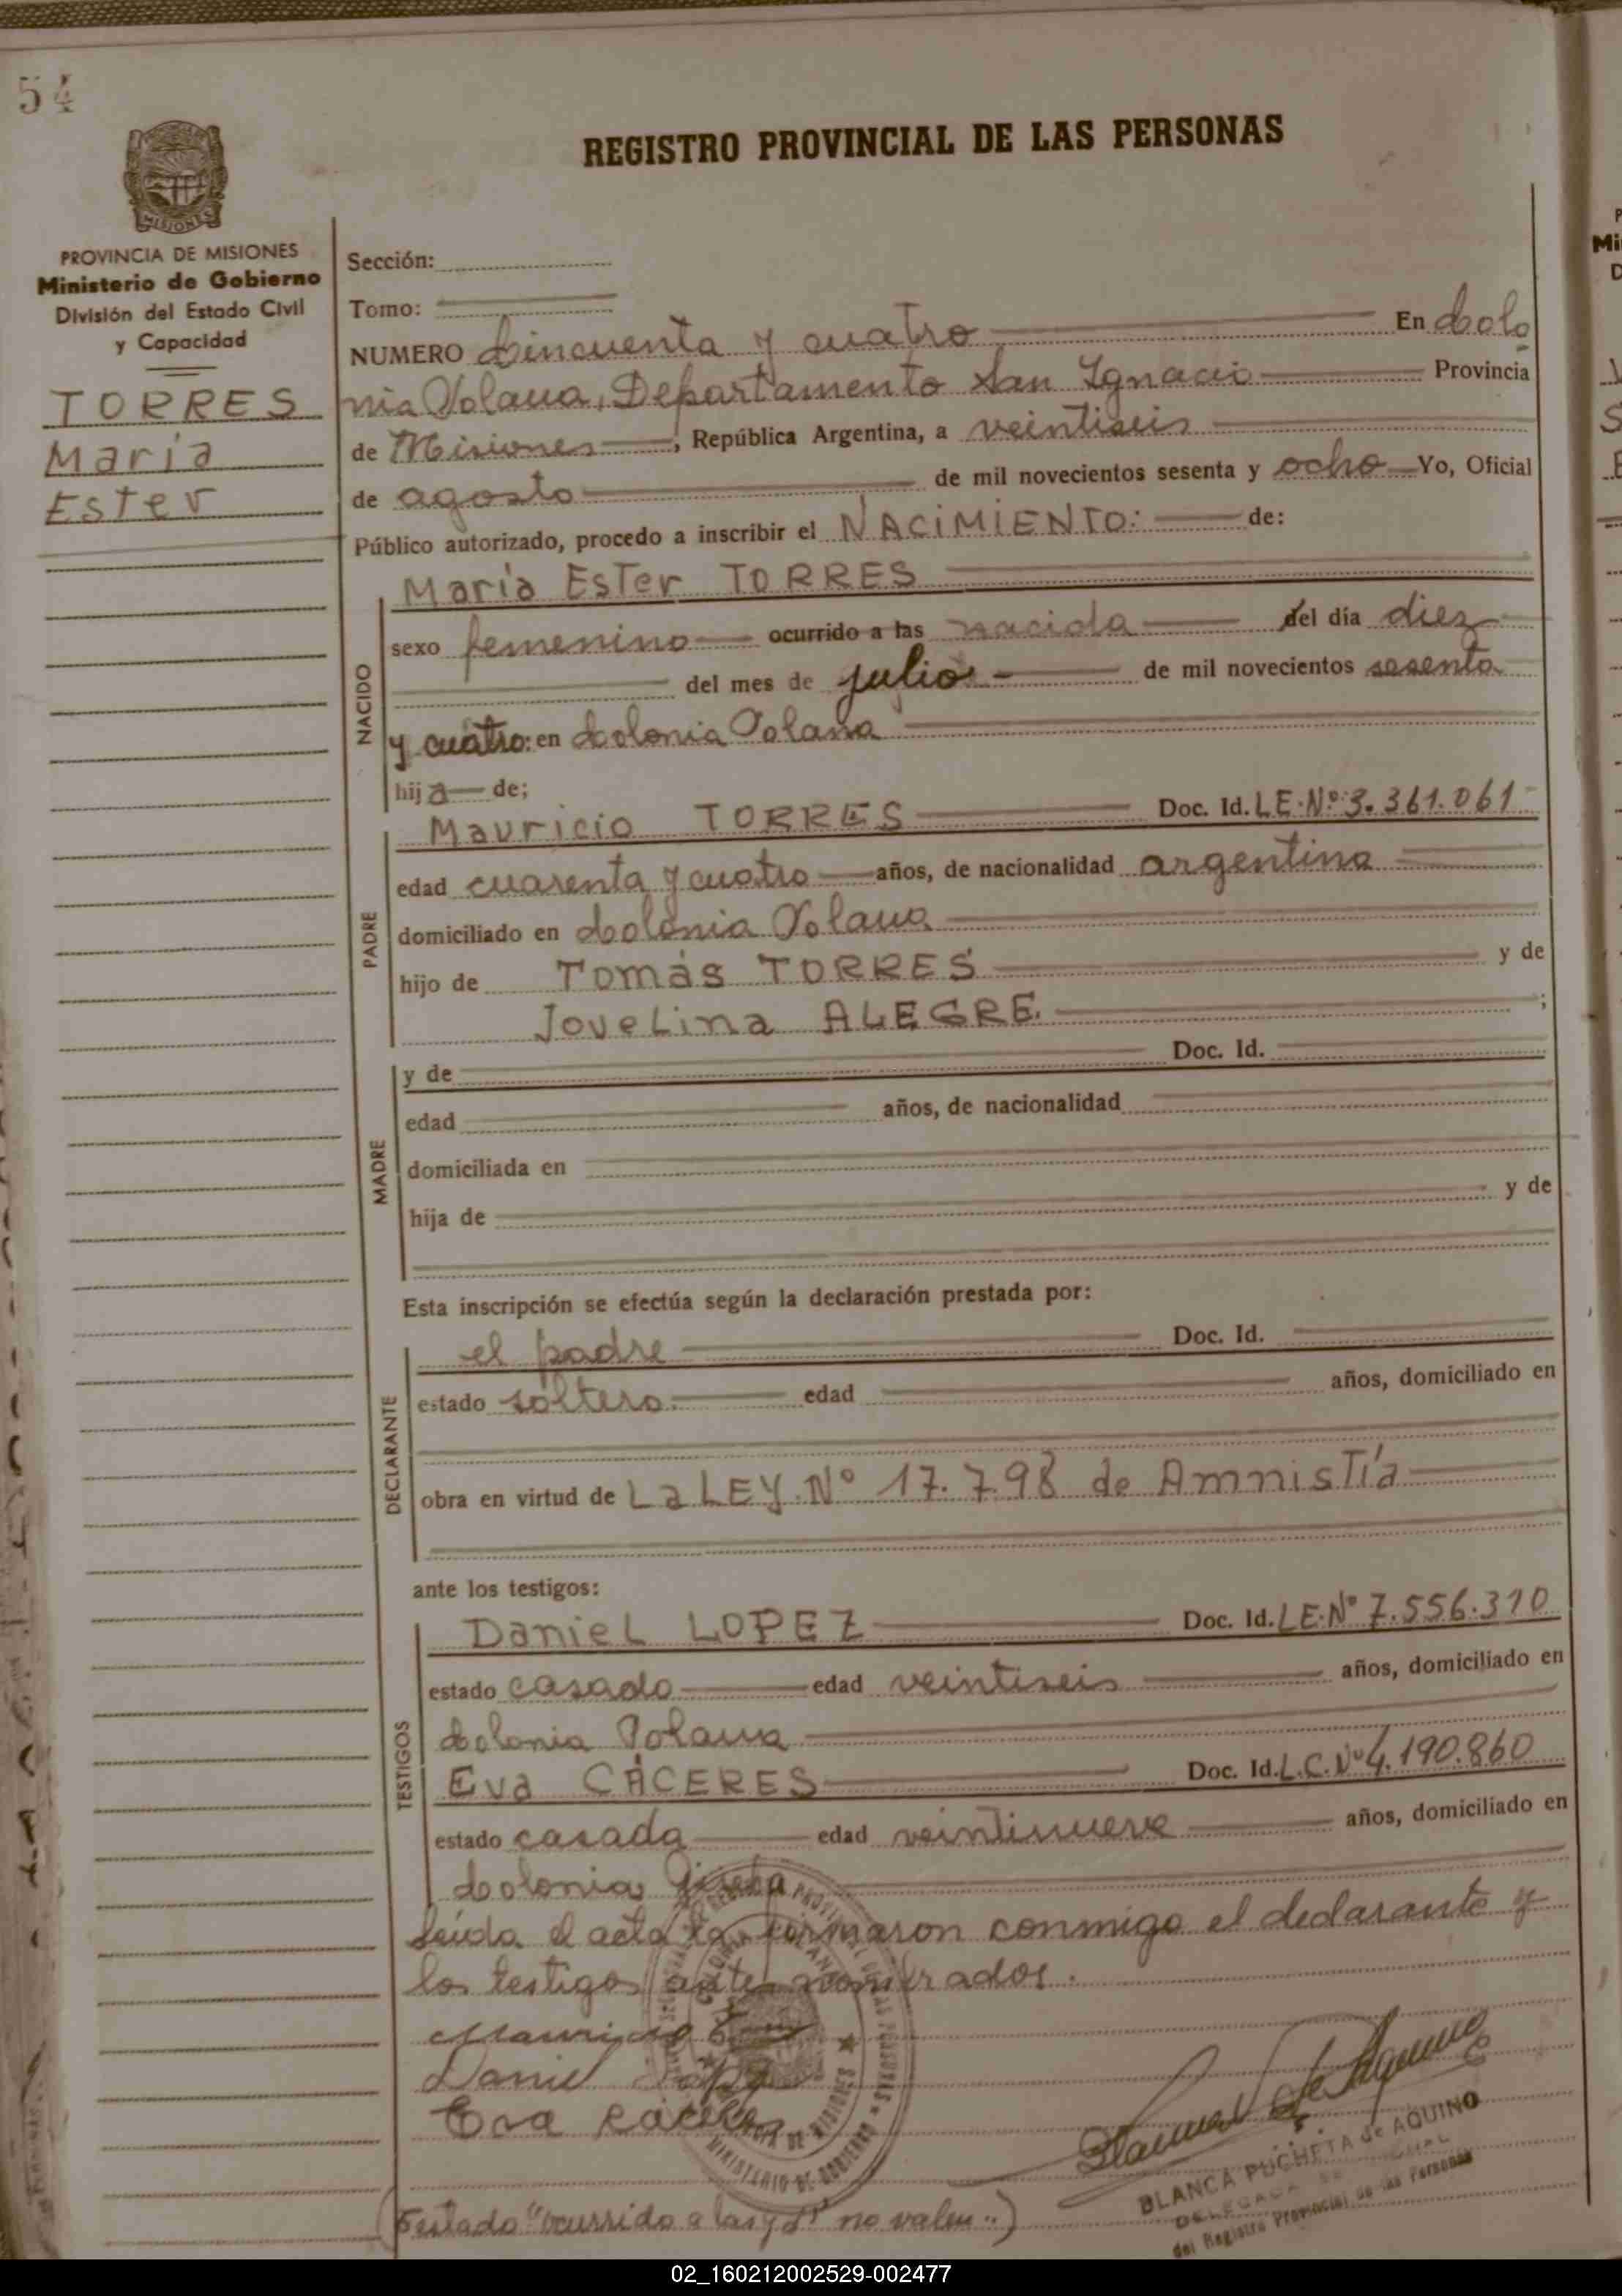 54
MISIONES
PROVINCIA DE MISIONES
Ministerio de Gobierno
División del Estado Civil
y Capacidad
TORRES
María
Ester
REGISTRO PROVINCIAL DE LAS PERSONAS
Sección:
Tomo:
NUMERO Cincuenta y cuatro En Colo
nia Polana, Departamento San Ignacio Provincia
de Misiones, República Argentina, a veintiseis
de agosto de mil novecientos sesenta y ocho Yo, Oficial
Público autorizado, procedo a inscribir el NACIMIENTO: de:
María Ester TORRES
NACIDO
sexo femenino ocurrido a las nacida del día diez
del mes de julio de mil novecientos sesenta
y cuatro: en Colonia Polana
hija de;
PADRE
Mauricio TORRES Doc. Id. LE.Nº 3.361.061
edad cuarenta y cuatro años, de nacionalidad argentina
domiciliado en Colonia Polana
hijo de Tomás TORRES y de
Jovelina ALEGRE. ;
MADRE
y de Doc. Id.
edad años, de nacionalidad
domiciliada en
hija de y de
Esta inscripción se efectúa según la declaración prestada por:
DECLARANTE
el padre Doc. Id.
estado soltero. edad años, domiciliado en
obra en virtud de La LEY.Nº 17.798 de Amnistía
ante los testigos:
TESTIGOS
Daniel LOPEZ Doc. Id. LE.Nº 7.556.310
estado casado edad veintiseis años, domiciliado en
Colonia Polana
Eva CÁCERES Doc. Id. L.C.Nº 4.190.860
estado casada edad veintinueve años, domiciliado en
Colonia
Leída el acta la firmaron conmigo el declarante y
los testigos antes nombrados.
Mauricio
Daniel Lopez
Eva Caceres
BLANCA PUCHETA de AQUINO
DELEGADA
del Registro Provincial de las Personas
MINISTERIO DE GOBIERNO
(Testado "ocurrido a las y d" no valen..)
02_160212002529-002477